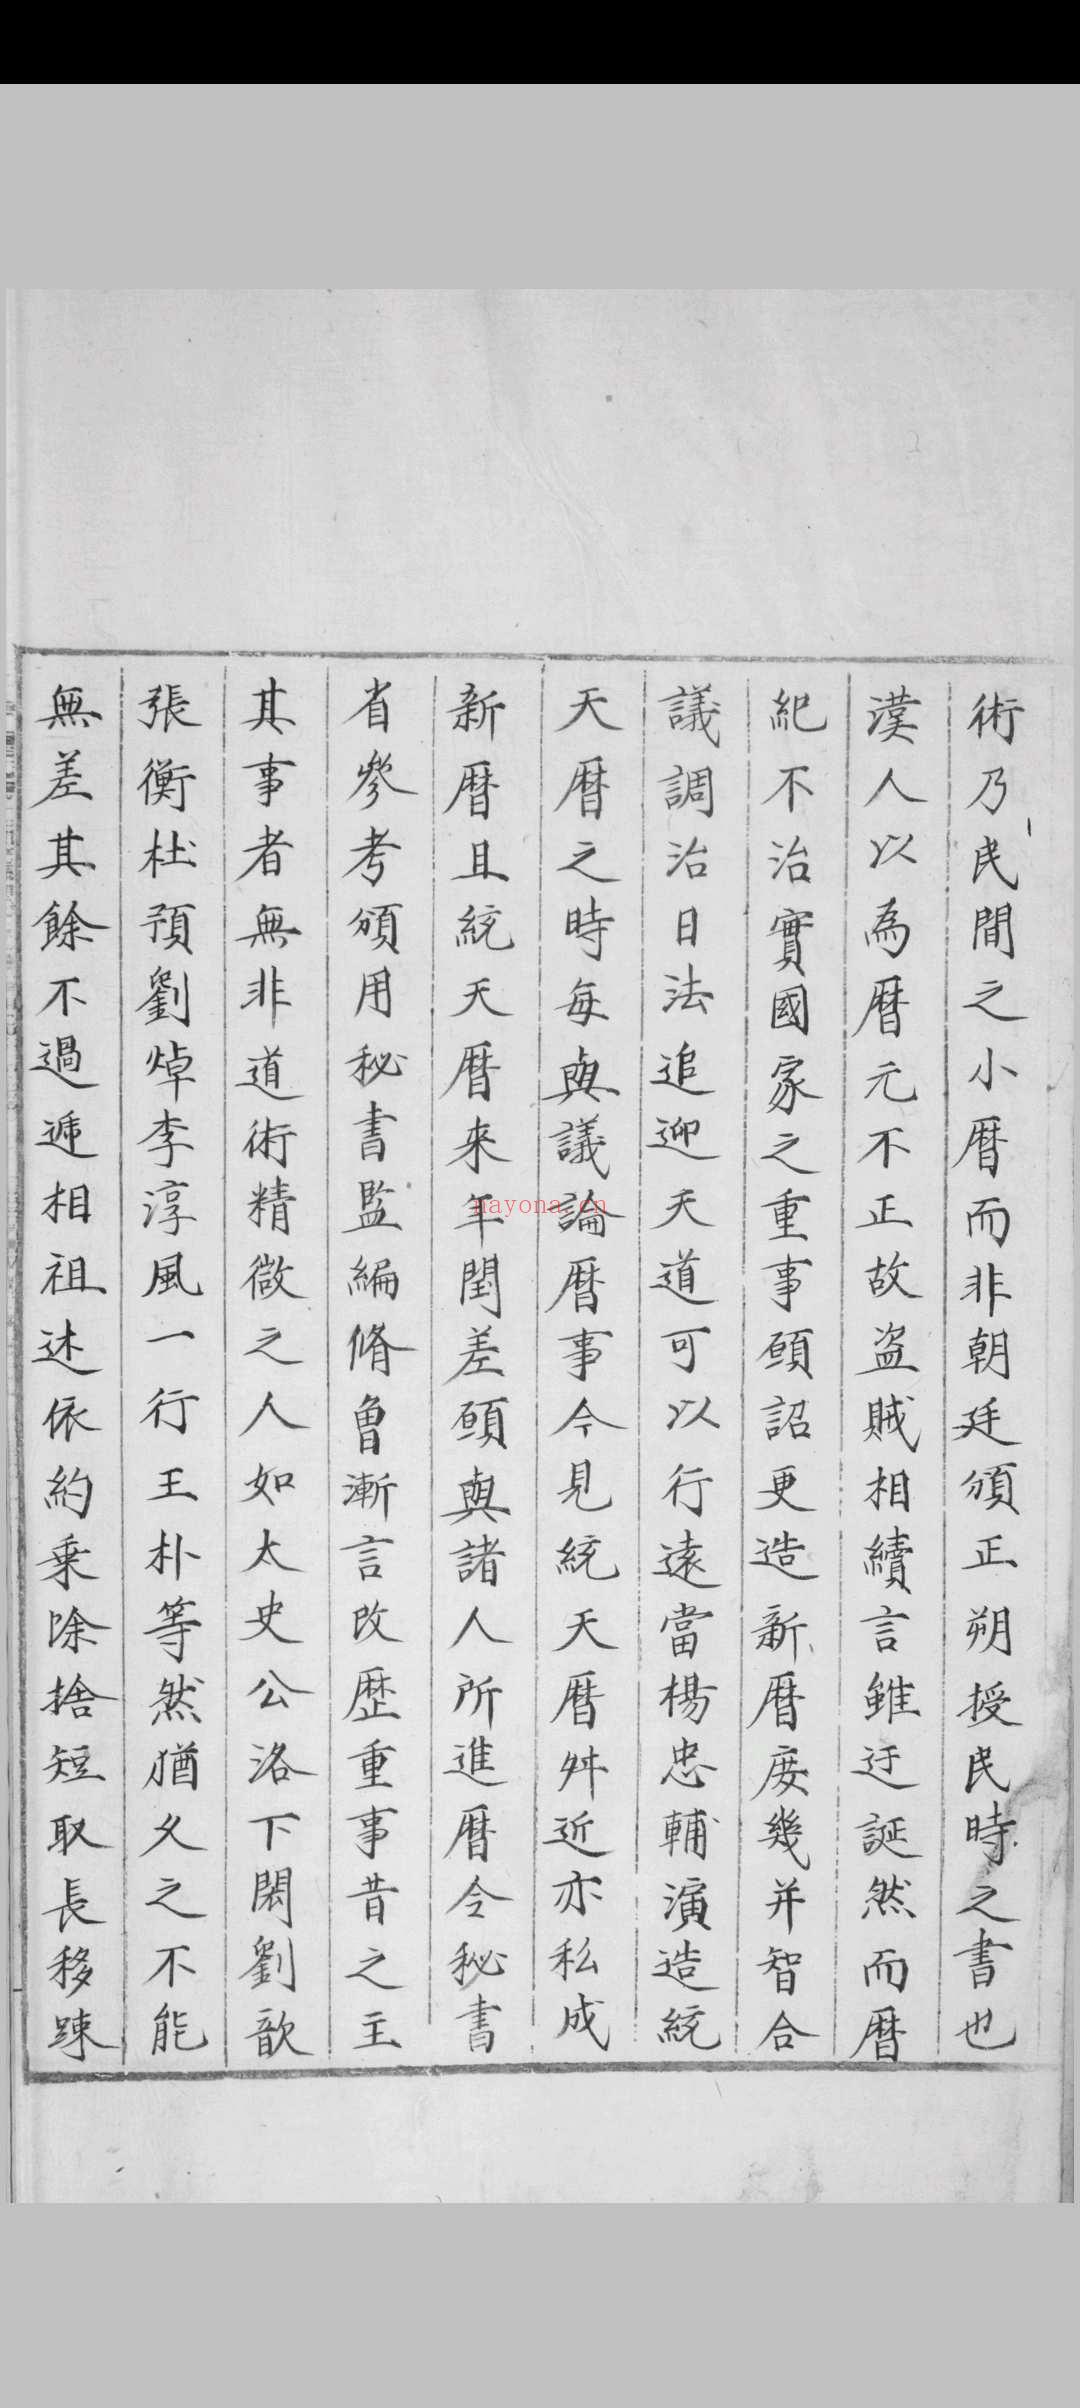 術乃民間之小暦而非朝廷頒正朔授民時之書也
漢人以為暦元不正故盗賊相續言雖迂誕然而暦
紀不治實國家之重事願詔更造新暦庻幾并智合
議調治日法追迎天道可以行遠當楊忠輔演造統
天暦之時每與議論暦事今見統天暦舛近亦私成
新暦且統天暦来年閏差願與諸人所進暦令秘書
省參考頒用秘書監編脩曾漸言改歴重事昔之主
其事者無非道術精微之人如太史公洛下閎劉歆
張衡杜預劉焯李淳風一行王朴等然猶久之不能
無差其餘不過遞相祖述依約乗除捨短取長移踈
nayona.cn